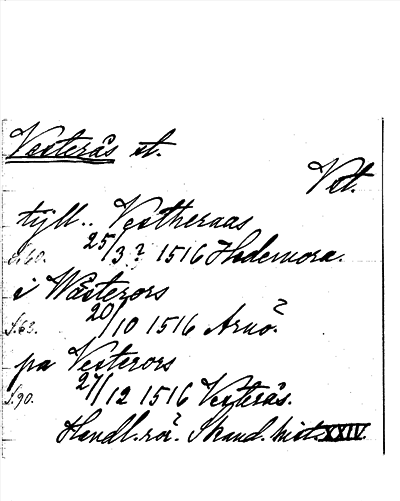 Vesterås st.
Vst.
tyll.. Vestheraas
s.60. 25/3? 1516 Hedemora.
i Wästerors
s.63. 20/10 1516 Arnö?
pa Vesterors
s.90. 27/12 1516 Vesterås.
Handl. rör. Skand. hist. XXIV.